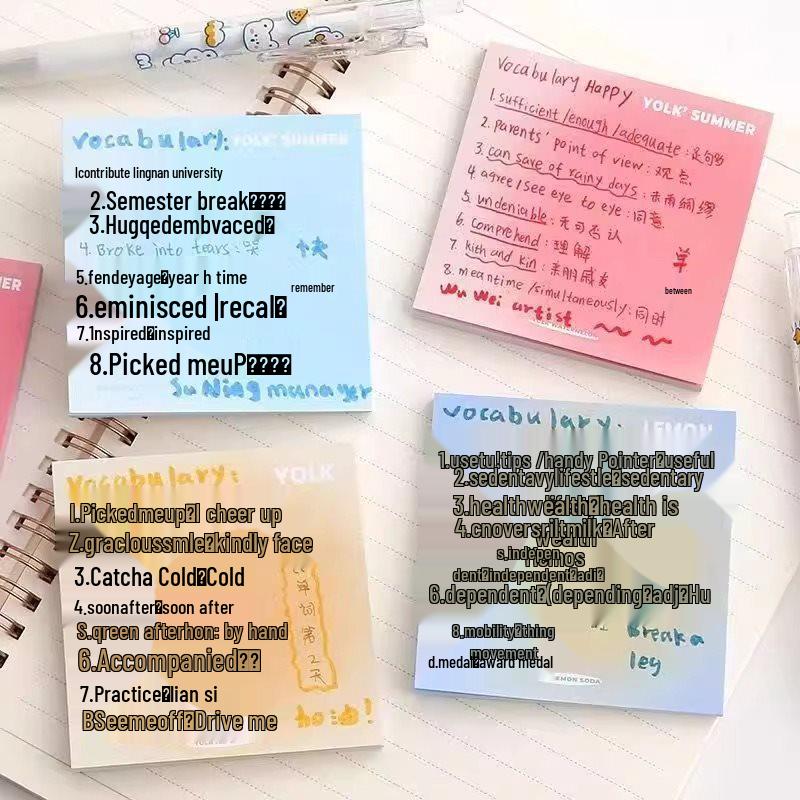 vocabulary: YOLK² SUMMER
1contribute lingnan university
2.Semester break
3.Hugqedembvaced
4. Broke into tears: 哭
5.fendeyage year h time
remember
6.eminisced |recal
7.1nspired inspired
8.Picked meuP
Su Ning manayer
Vocabulary Happy YOLK² SUMMER
1. sufficient /enough /adequate : 足够多
2. parents' point of view : 观点
3. can save of rainy days : 未雨绸缪
4 agree/see eye to eye : 同意
5. undeniable : 无可否认
6. comprehend : 理解
7. kith and kin : 亲朋戚友
8. meantime /simultaneously: 同时
between
Wu Wei artist
MER
Vocabulary: YOLK
I.Pickedmeup I cheer up
Z.gracloussmle kindly face
3.Catcha Cold Cold
4.soonafter soon after
S.qreen afterhon: by hand
6.Accompanied
7.Practice lian si
BSeemeoff Drive me
单词第2天
vocabulary. LEMON
1.usetu!tips /handy Pointer useful
2.sedentavylifestle sedentary
3.healthwealth health is
wealth
4.cnoversriltmilk After
s.indepen
dent independent adi
6.dependent (depending adj Hu
8.mobility thing
movement
d.medal award medal
break a
leg
LEMON SODA